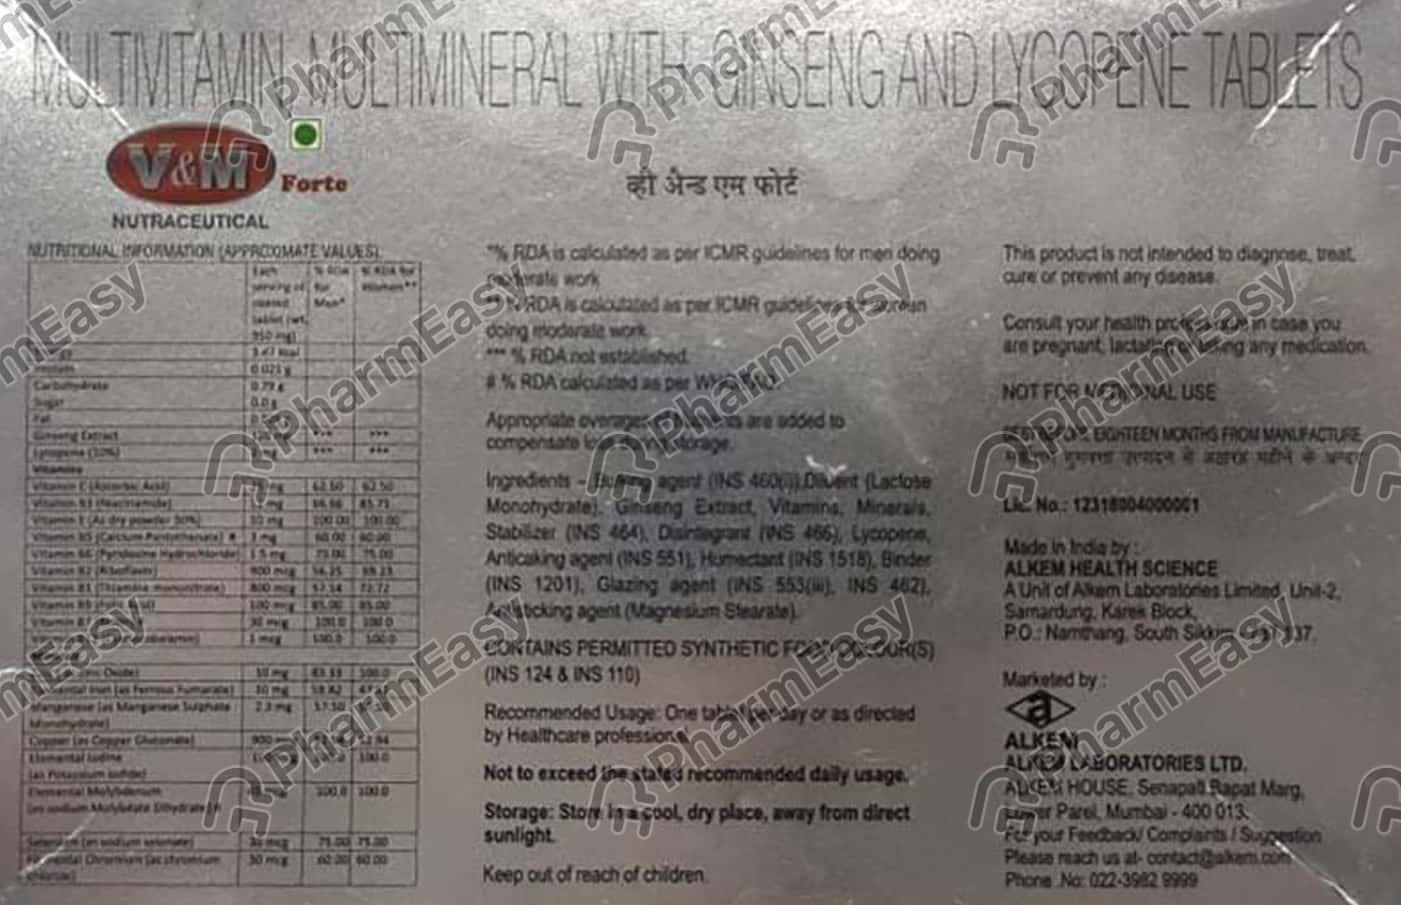 MULTIVITAMIN, MULTIMINERAL WITH GINSENG AND LYCOPENE TABLETS
V&M Forte
NUTRACEUTICAL
व्ही ॲन्ड एम फोर्ट
NUTRITIONAL INFORMATION (APPROXIMATE VALUES)
Each serving of coated tablet (wt. 950 mg) % RDA for Men* % RDA for Women**
Protein 0.021 g
Carbohydrate 0.79 g
Sugar 0.0 g
Fat
Ginseng Extract *** ***
Lycopene (10%) *** ***
Vitamins
Vitamin C (Ascorbic Acid) 62.50 62.50
Vitamin B3 (Niacinamide) 85.71
Vitamin E (As dry powder 50%) 10 mg 100.00 100.00
Vitamin B5 (Calcium Pantothenate) # 3 mg 60.00 60.00
Vitamin B6 (Pyridoxine Hydrochloride) 1.5 mg 75.00 75.00
Vitamin B2 (Riboflavin) 900 mcg 56.25 69.23
Vitamin B1 (Thiamine mononitrate) 800 mcg 57.14 72.72
Vitamin B9 100 mcg 85.00 85.00
30 mcg 100.0 100.0
1 mcg 100.0 100.0
10 mg 83.33 100.0
Elemental Iron (as Ferrous Fumarate) 10 mg 58.82
Manganese (as Manganese Sulphate Monohydrate) 2.3 mg 57.50
Copper (as Copper Gluconate) 900
Elemental Iodine (as Potassium Iodide) 100.0
Elemental Molybdenum (as sodium Molybdate Dihydrate) # 100.0 100.0
Selenium (as sodium selenate) 30 mcg 75.00 75.00
Elemental Chromium (as chromium chloride) 30 mcg 60.00 60.00
*% RDA is calculated as per ICMR guidelines for men doing
moderate work
** % RDA is calculated as per ICMR guidelines for women
doing moderate work.
*** % RDA not established.
# % RDA calculated as per
Appropriate overages of are added to
compensate storage.
Ingredients - Bulking agent (INS 460(i)), Diluent (Lactose
Monohydrate), Ginseng Extract, Vitamins, Minerals,
Stabilizer (INS 464), Disintegrant (INS 466), Lycopene,
Anticaking agent (INS 551), Humectant (INS 1518), Binder
(INS 1201), Glazing agent (INS 553(iii), INS 462),
Antisticking agent (Magnesium Stearate).
CONTAINS PERMITTED SYNTHETIC FOOD COLOUR(S)
(INS 124 & INS 110)
Recommended Usage: One tablet per day or as directed
by Healthcare professional.
Not to exceed the stated recommended daily usage.
Storage: Store in a cool, dry place, away from direct
sunlight.
Keep out of reach of children.
This product is not intended to diagnose, treat,
cure or prevent any disease.
Consult your health professional in case you
are pregnant, lactating or taking any medication.
NOT FOR MEDICINAL USE
BEST BEFORE EIGHTEEN MONTHS FROM MANUFACTURE.
उत्पादन से अठारह महीने के अन्दर
Lic. No.: 12318004000001
Made in India by :
ALKEM HEALTH SCIENCE
A Unit of Alkem Laboratories Limited, Unit-2,
Samardung, Karek Block,
P.O.: Namthang, South Sikkim
Marketed by :
ALKEM
ALKEM LABORATORIES LTD.
ALKEM HOUSE, Senapati Bapat Marg,
Lower Parel, Mumbai - 400 013.
For your Feedback/ Complaints / Suggestion
Please reach us at- contact@alkem.com
Phone .No: 022-3982 9999
PharmEasy